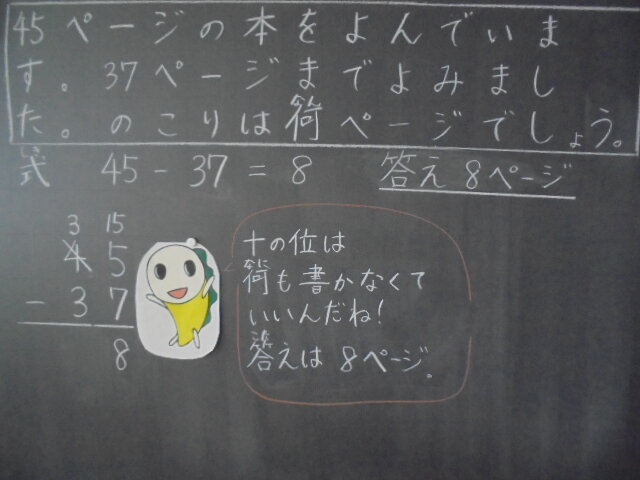 45ページの本をよんでいま
す。37ページまでよみまし
た。のこりは何ページでしょう。
しき
式 45-37=8 答え 8ページ
3 15
45
-37
8
十の位は
何も書かなくて
いいんだね!
こた
答えは 8ページ。